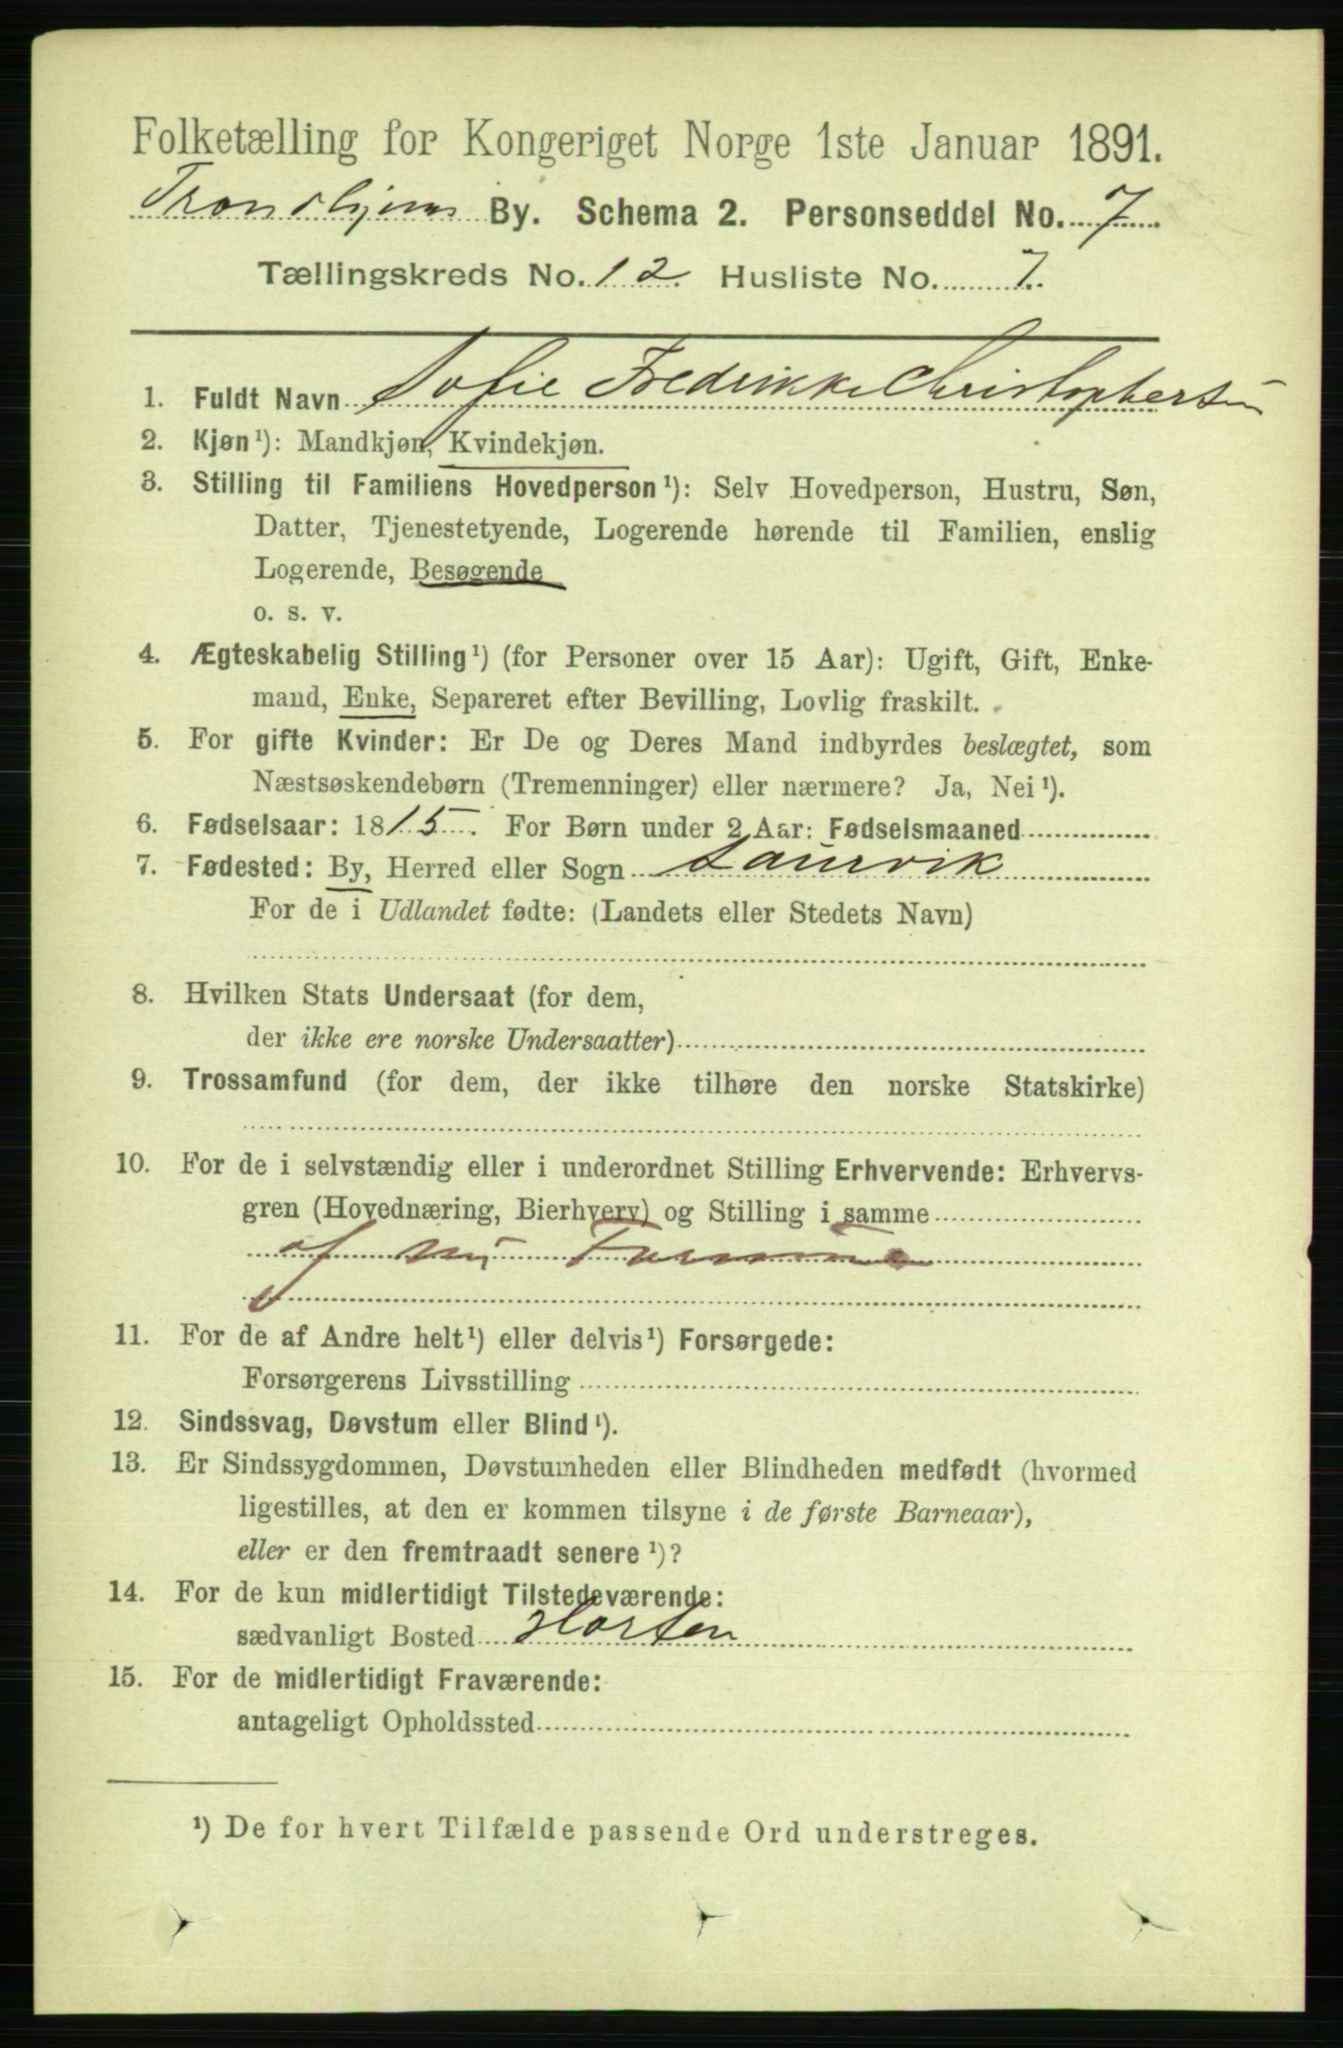 Folketælling for Kongeriget Norge 1ste Januar 1891.
Trondhjems By. Schema 2. Personseddel No. 7
Tællingskreds No. 12. Husliste No. 7.
1. Fuldt Navn Sofie Fredrikke Christophersen
2. Kjøn¹): Mandkjøn, Kvindekjøn.
3. Stilling til Familiens Hovedperson¹): Selv Hovedperson, Hustru, Søn,
Datter, Tjenestetyende, Logerende hørende til Familien, enslig
Logerende, Besøgende
o. s. v.
4. Ægteskabelig Stilling¹) (for Personer over 15 Aar): Ugift, Gift, Enke-
mand, Enke, Separeret efter Bevilling, Lovlig fraskilt.
5. For gifte Kvinder: Er De og Deres Mand indbyrdes beslægtet, som
Næstsøskendebørn (Tremenninger) eller nærmere? Ja, Nei¹).
6. Fødselsaar: 1815. For Børn under 2 Aar: Fødselsmaaned
7. Fødested: By, Herred eller Sogn Laurvik
For de i Udlandet fødte: (Landets eller Stedets Navn)
8. Hvilken Stats Undersaat (for dem,
der ikke ere norske Undersaatter)
9. Trossamfund (for dem, der ikke tilhøre den norske Statskirke)
10. For de i selvstændig eller i underordnet Stilling Erhvervende: Erhvervs-
gren (Hovednæring, Bierhverv) og Stilling i samme
af
11. For de af Andre helt¹) eller delvis¹) Forsørgede:
Forsørgerens Livsstilling
12. Sindssvag, Døvstum eller Blind¹).
13. Er Sindssygdommen, Døvstumheden eller Blindheden medfødt (hvormed
ligestilles, at den er kommen tilsyne i de første Barneaar),
eller er den fremtraadt senere¹)?
14. For de kun midlertidigt Tilstedeværende:
sædvanligt Bosted Horten
15. For de midlertidigt Fraværende:
antageligt Opholdssted
¹) De for hvert Tilfælde passende Ord understreges.